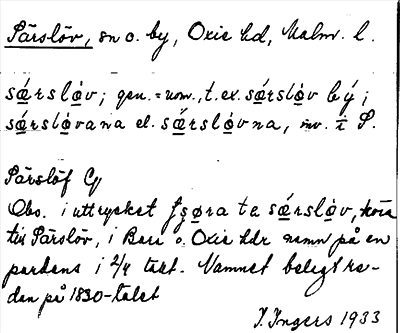 Särslöv, sn o. by, Oxie hd, Malm. l.
sǽrsløv; gen. = nom., t.ex. sǽrsløv bý;
sǽrsløvana el. sǽrsløvna, inv. i S.
Särslöf Cy
Obs. i uttrycket fgøra te sǽrsløv, köra
till Särslöv, i Bara o. Oxie hdr namn på en
pardans i 2/4 takt. Namnet belagt re-
dan på 1830-talet
I. Ingers 1933